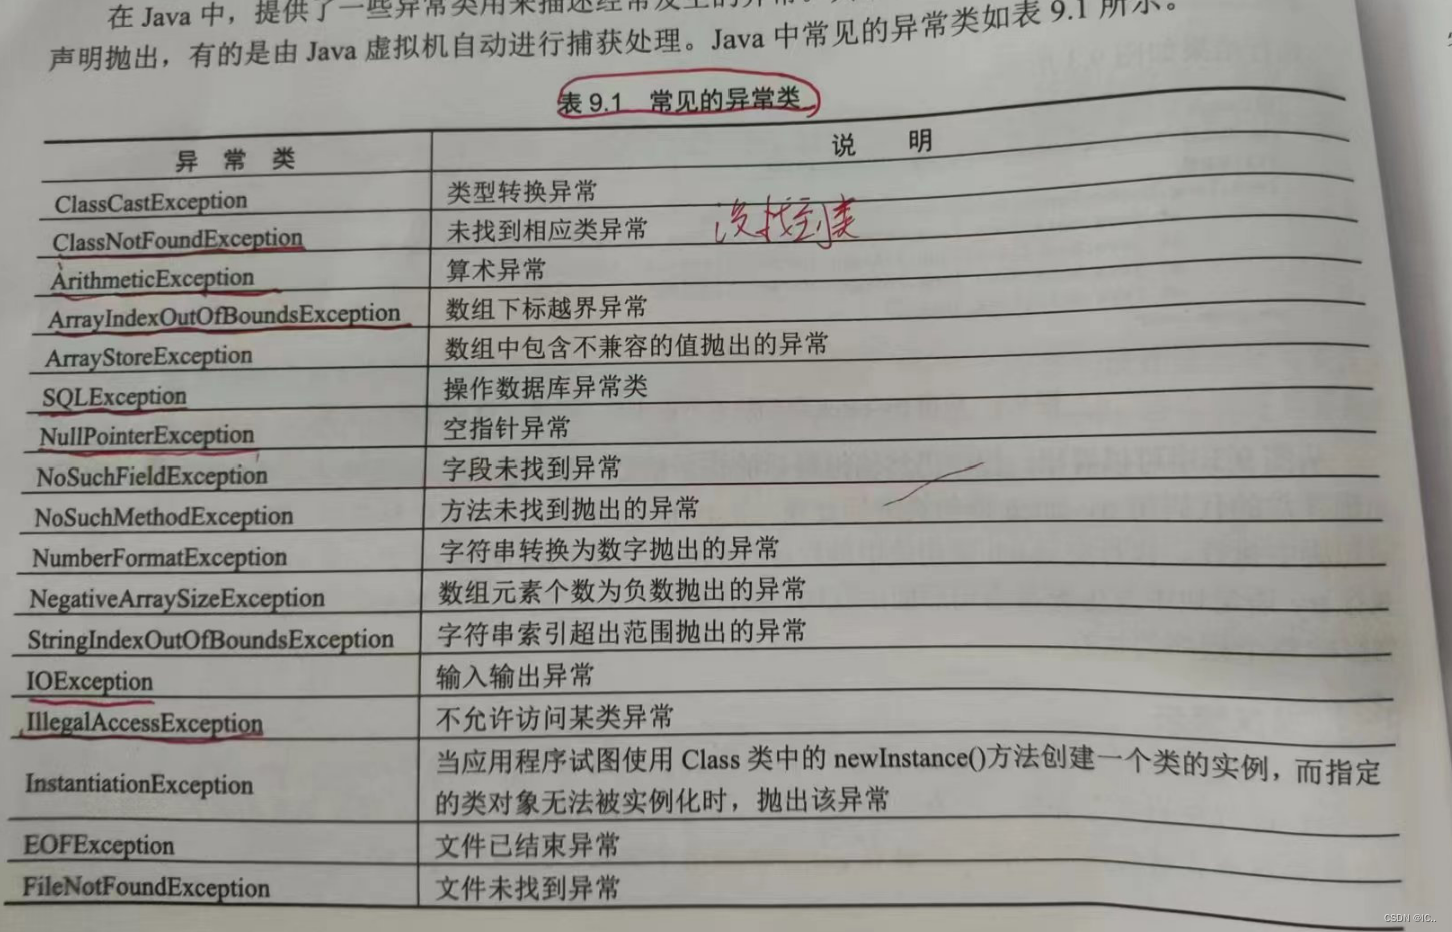 在 Java 中，提供了一些异常类用来描述经常发生的异常。
声明抛出，有的是由 Java 虚拟机自动进行捕获处理。Java 中常见的异常类如表 9.1 所示。
表 9.1 常见的异常类
异 常 类 说 明
ClassCastException 类型转换异常
ClassNotFoundException 未找到相应类异常 没找到类
ArithmeticException 算术异常
ArrayIndexOutOfBoundsException 数组下标越界异常
ArrayStoreException 数组中包含不兼容的值抛出的异常
SQLException 操作数据库异常类
NullPointerException 空指针异常
NoSuchFieldException 字段未找到异常
NoSuchMethodException 方法未找到抛出的异常
NumberFormatException 字符串转换为数字抛出的异常
NegativeArraySizeException 数组元素个数为负数抛出的异常
StringIndexOutOfBoundsException 字符串索引超出范围抛出的异常
IOException 输入输出异常
IllegalAccessException 不允许访问某类异常
InstantiationException 当应用程序试图使用 Class 类中的 newInstance()方法创建一个类的实例，而指定
的类对象无法被实例化时，抛出该异常
EOFException 文件已结束异常
FileNotFoundException 文件未找到异常
CSDN @IC..